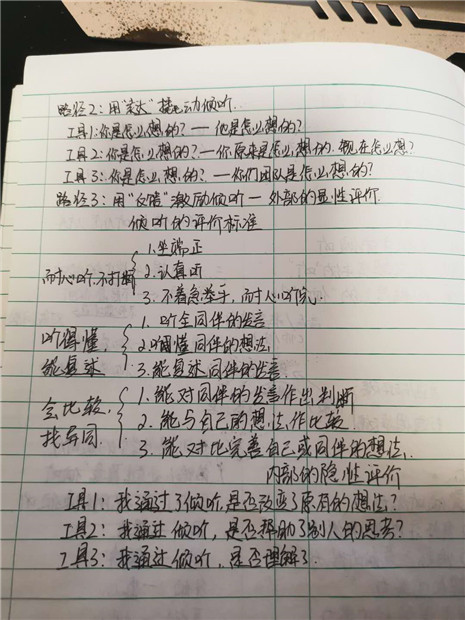 路径2：用"表达"推动倾听.
工具1：你是怎么想的？—他是怎么想的？
工具2：你是怎么想的？—你原来是怎么想的，现在怎么想？
工具3：你是怎么想的？—你们团队是怎么想的？
路径3：用"反馈"激励倾听—外部的显性评价
倾听的评价标准
耐心听.不打断
1.坐端正
2.认真听
3.不着急举手，耐心听完.
听得懂
能复述
1.听全同伴的发言
2.听懂同伴的想法
3.能复述同伴的发言.
会比较.
找异同.
1.能对同伴的发言作出判断
2.能与自己的想法作比较
3.能对比完善自己或同伴的想法.
内部的隐性评价
工具1：我通过了倾听，是否改变了原有的想法？
工具2：我通过倾听，是否帮助了别人的思考？
工具3：我通过倾听，是否理解了.